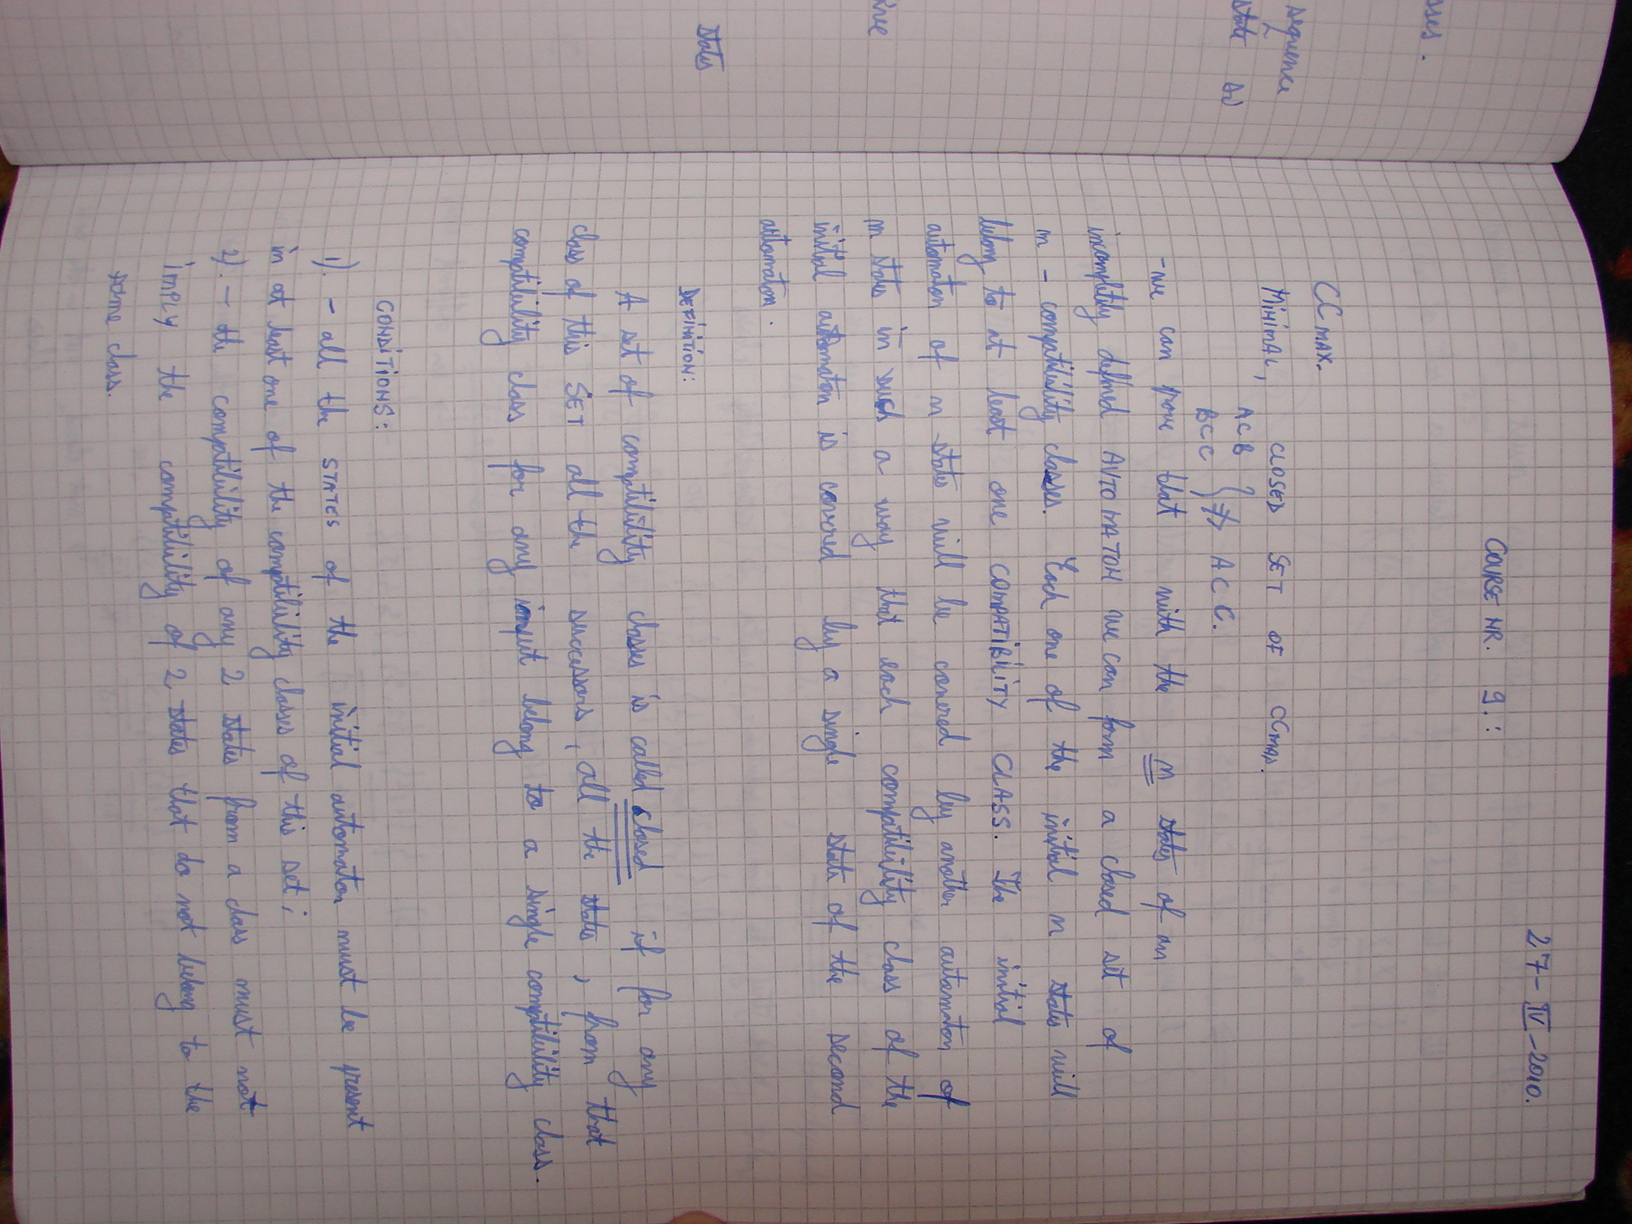 sses.
sequence
state so
states
27-IV-2010.
COURSE NR. 9.:
CCmax.
MiniMAL, CLOSED SET OF CCmax.
ACB
BCC } ≠> ACC.
-we can prove that with the n states of an
incomplitly defined AUTOMATON we can form a closed set of
m - comptibility classes. Each one of the initial n states will
belong to at least one COMPATIBILITY CLASS. The initial
automaton of n states will be convered by another automaton of
m states in such a way that each comptibility class of the
initial automaton is convered by a single state of the second
automaton.
DEFINITION:
A set of comptibility classes is called closed if for any
class of this SET all the successors, all the states, from that
comptibility class for any imput belong to a single comptibility class.
CONDITIONS:
1). - all the STATES of the initial automaton must be present
in at least one of the comptibility classes of this set;
2). - the comptibility of any 2 states from a class must not
imPLY the comptibility of 2 states that do not belong to the
same class.